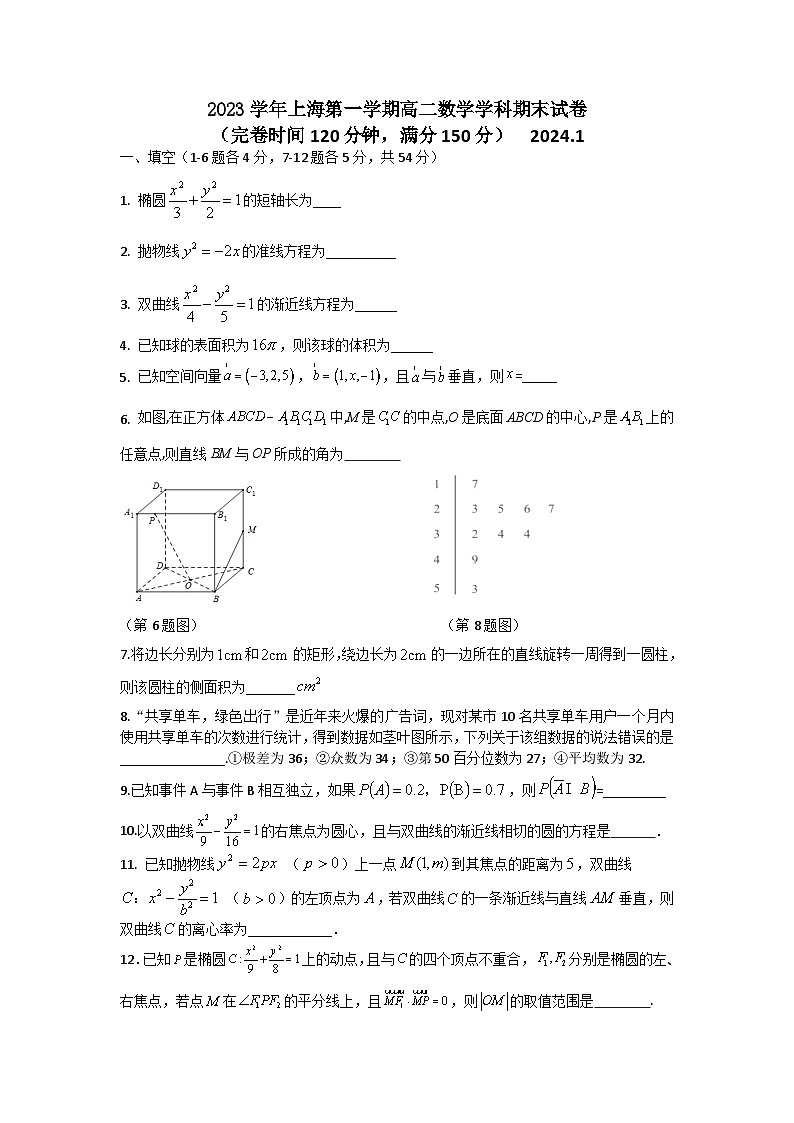 2023 学年上海第一学期高二数学学科期末试卷
（完卷时间 120 分钟，满分 150 分） 2024.1
一、填空（1-6 题各 4 分，7-12 题各 5 分，共 54 分）
1. 椭圆 x²/3 + y²/2 = 1 的短轴长为____
2. 抛物线 y² = −2x 的准线方程为__________
3. 双曲线 x²/4 − y²/5 = 1 的渐近线方程为______
4. 已知球的表面积为 16π，则该球的体积为______
5. 已知空间向量 a = (−3,2,5)，b = (1,x,−1)，且 a 与 b 垂直，则 x =_____
6. 如图,在正方体 ABCD− A₁B₁C₁D₁ 中,M 是 C₁C 的中点,O 是底面 ABCD 的中心,P 是 A₁B₁ 上的
任意点,则直线 BM 与 OP 所成的角为________
D₁ C₁
A₁ P B₁
M
D C
O
A B
1 7
2 3 5 6 7
3 2 4 4
4 9
5 3
（第 6 题图） （第 8 题图）
7.将边长分别为 1cm 和 2cm 的矩形,绕边长为 2cm 的一边所在的直线旋转一周得到一圆柱，
则该圆柱的侧面积为_______cm²
8. “共享单车，绿色出行”是近年来火爆的广告词，现对某市 10 名共享单车用户一个月内
使用共享单车的次数进行统计，得到数据如茎叶图所示，下列关于该组数据的说法错误的是
_______________.①极差为 36；②众数为 34；③第 50 百分位数为 27；④平均数为 32.
9.已知事件 A 与事件 B 相互独立，如果 P(A) = 0.2，P(B) = 0.7，则 P(A̅ I B)=_________
10.以双曲线 x²/9 − y²/16 = 1 的右焦点为圆心，且与双曲线的渐近线相切的圆的方程是______．
11. 已知抛物线 y² = 2px （p > 0）上一点 M(1,m) 到其焦点的距离为 5，双曲线
C：x² − y²/b² = 1 （b > 0）的左顶点为 A，若双曲线 C 的一条渐近线与直线 AM 垂直，则
双曲线 C 的离心率为____________．
12. 已知 P 是椭圆 C : x²/9 + y²/8 = 1 上的动点，且与 C 的四个顶点不重合，F₁,F₂ 分别是椭圆的左、
右焦点，若点 M 在 ∠F₁PF₂ 的平分线上，且 MF₁ · MP = 0，则 |OM| 的取值范围是________.